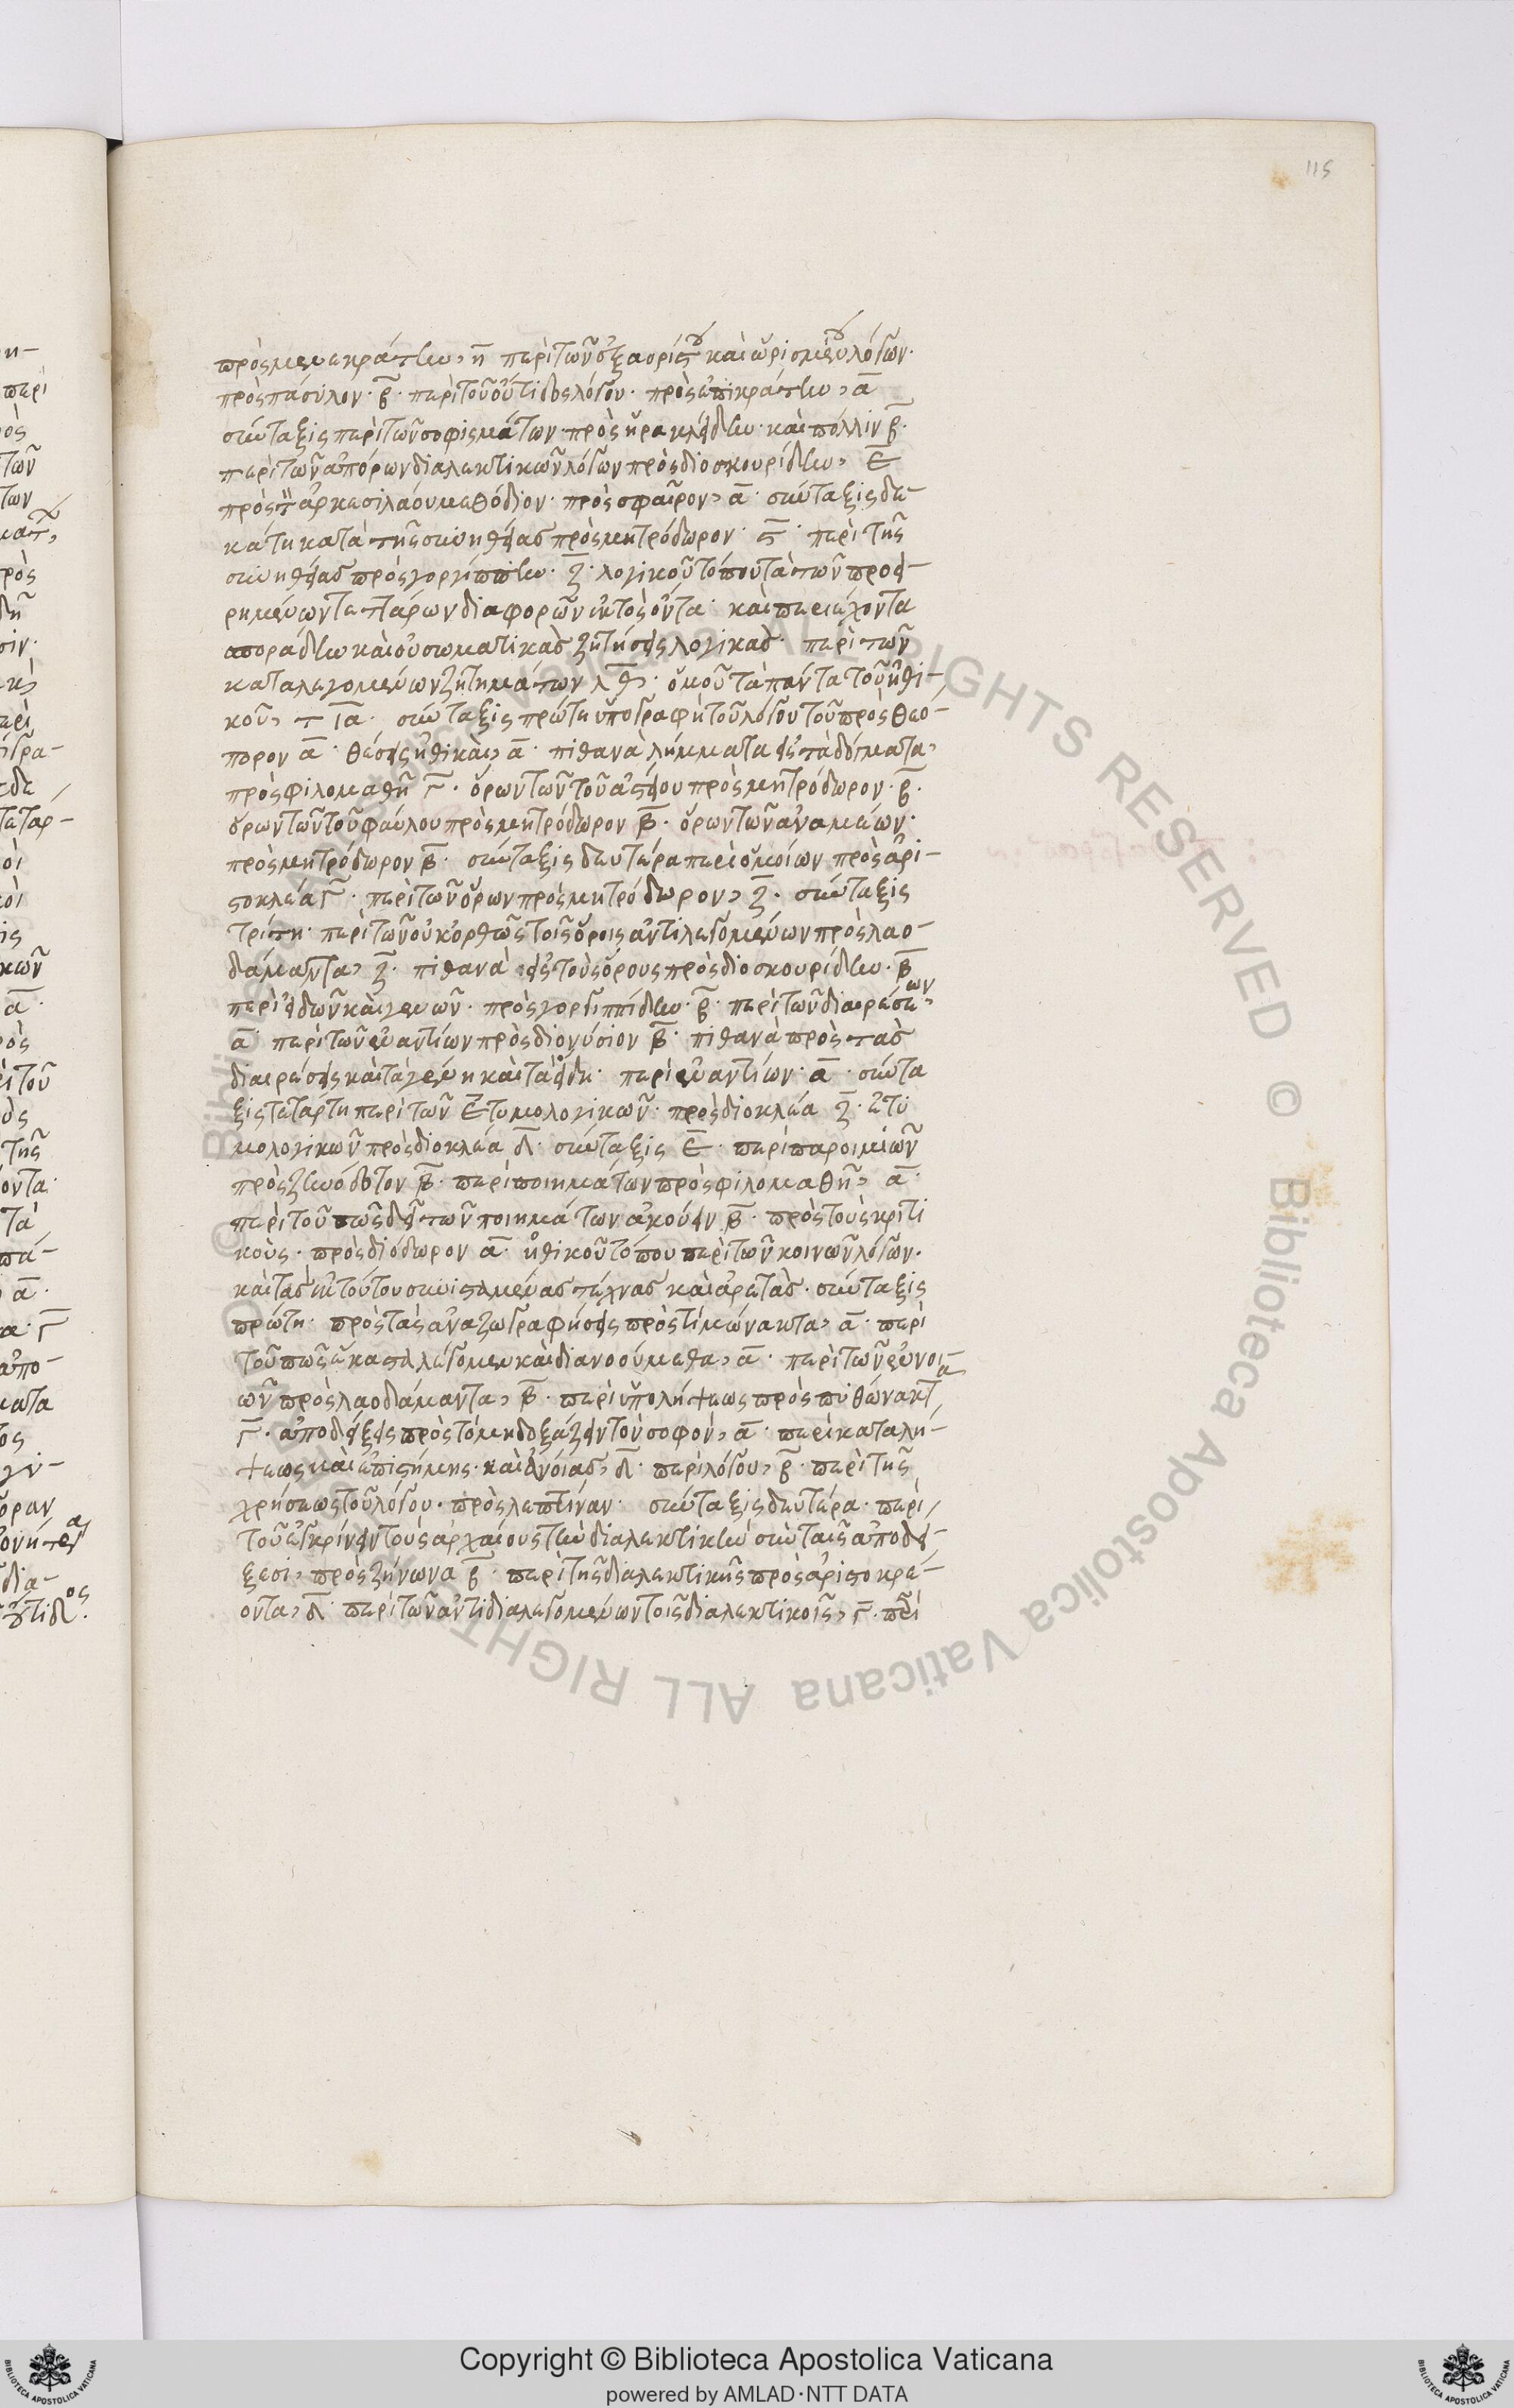 115
πρὸς μενεκράτην, η̄ περὶ τῶν ἐξ ἀορίστου καὶ ὡρισμένου λόγων·
πρὸς πάσυλον· β̄· περὶ τοῦ οὔτιδος λόγου· πρὸς ἐπικράτην, ᾱ
σύνταξις περὶ τῶν σοφισμάτων πρὸς ἡρακλείδην· καὶ πόλλιν β̄·
περὶ τῶν ἀπόρων διαλεκτικῶν λόγων πρὸς διοσκουρίδην, ε̄
πρὸς τὸ ἀρκεσιλάου μεθόδιον· πρὸς σφαῖρον, ᾱ· σύνταξις δε-
κάτη κατὰ τῆς συνηθείας πρὸς μητρόδωρον· ϛ̄· περὶ τῆς
συνηθείας πρὸς γοργιππίδην· ζ̄· λογικοῦ τόπου τὰ τῶν προει-
ρημένων τεττάρων διαφορῶν ἐκτὸς ὄντα· καὶ περιέχοντα
σποράδην καὶ οὐ σωματικὰς ζητήσεις λογικάς· περὶ τῶν
καταλεγομένων ζητημάτων λ̄θ̄· ὁμοῦ τὰ πάντα τοῦ ἠθι-
κοῦ, τ ῑᾱ· σύνταξις πρώτη ὑπογραφὴ τοῦ λόγου τοῦ πρὸς θεο-
πορον ᾱ· θέσεις ἠθικαὶ, ᾱ· πιθανὰ λήμματα εἰς τὰ δόγματα,
πρὸς φιλομαθῆ γ̄· ὅρων τῶν τοῦ ἀστείου πρὸς μητρόδωρον· β̄·
ὅρων τῶν τοῦ φαύλου πρὸς μητρόδωρον β̄· ὅρων τῶν ἀναμέσων·
πρὸς μητρόδωρον β̄· σύνταξις δευτέρα περὶ ὁμοίων πρὸς ἀρι-
στοκλέα γ̄· περὶ τῶν ὅρων πρὸς μητρόδωρον, ζ̄· σύνταξις
τρίτη· περὶ τῶν οὐκ ὀρθῶς τοῖς ὅροις ἀντιλεγομένων πρὸς λαο-
δάμαντα, ζ̄· πιθανὰ εἰς τοὺς ὅρους πρὸς διοσκουρίδην· β̄
περὶ εἰδῶν καὶ γενῶν· πρὸς γοργιππίδην· β̄· περὶ τῶν διαιρέσεων,
ᾱ· περὶ τῶν ἐναντίων πρὸς διονύσιον β̄· πιθανὰ πρὸς τὰς
διαιρέσεις καὶ τὰ γένη καὶ τὰ εἴδη· περὶ ἐναντίων· ᾱ· σύντα
ξις τετάρτη περὶ τῶν ἐτυμολογικῶν· πρὸς διοκλέα ζ̄· ἐτυ
μολογικῶν πρὸς διοκλέα δ̄· σύνταξις ε̄· περὶ παροιμιῶν
πρὸς ζηνόδοτον β̄· περὶ ποιημάτων πρὸς φιλομαθῆ, ᾱ·
περὶ τοῦ πῶς δεῖ τῶν ποιημάτων ἀκούειν β̄· πρὸς τοὺς κριτι
κούς· πρὸς διόδωρον ᾱ· ἠθικοῦ τόπου περὶ τῶν κοινῶν λόγων·
καὶ τὰς ἐκ τούτου συνισταμένας τέχνας καὶ ἀρετάς· σύνταξις
πρώτη· πρὸς τὰς ἀναζωγραφήσεις πρὸς τιμώνακτα, ᾱ· περὶ
τοῦ πῶς ἕκαστα λέγομεν καὶ διανοούμεθα, ᾱ· περὶ τῶν ἐννοι-
ῶν πρὸς λαοδάμαντα, β̄· περὶ ὑπολήψεως πρὸς πυθώνακτα
γ̄· ἀποδείξεις πρὸς τὸ μὴ δοξάζειν τὸν σοφόν, ᾱ· περὶ καταλή-
ψεως καὶ ἐπιστήμης· καὶ ἀγνοίας, δ̄· περὶ λόγου, β̄· περὶ τῆς
χρήσεως τοῦ λόγου· πρὸς λεπτίναν· σύνταξις δευτέρα· περὶ
τοῦ ἐγκρίνειν τοὺς ἀρχαίους τὴν διαλεκτικὴν σὺν ταῖς ἀποδεί-
ξεσι, πρὸς ζήνωνα β̄· περὶ τῆς διαλεκτικῆς πρὸς ἀριστοκρέ-
οντα, δ̄· περὶ τῶν ἀντιδιαλεγομένων τοῖς διαλεκτικοῖς, γ̄· περὶ
© Biblioteca Apostolica Vaticana ALL RIGHTS RESERVED © Biblioteca Apostolica Vaticana ALL RIGHTS
Copyright © Biblioteca Apostolica Vaticana
powered by AMLAD·NTT DATA
BIBLIOTECA APOSTOLICA VATICANA
BIBLIOTECA APOSTOLICA VATICANA